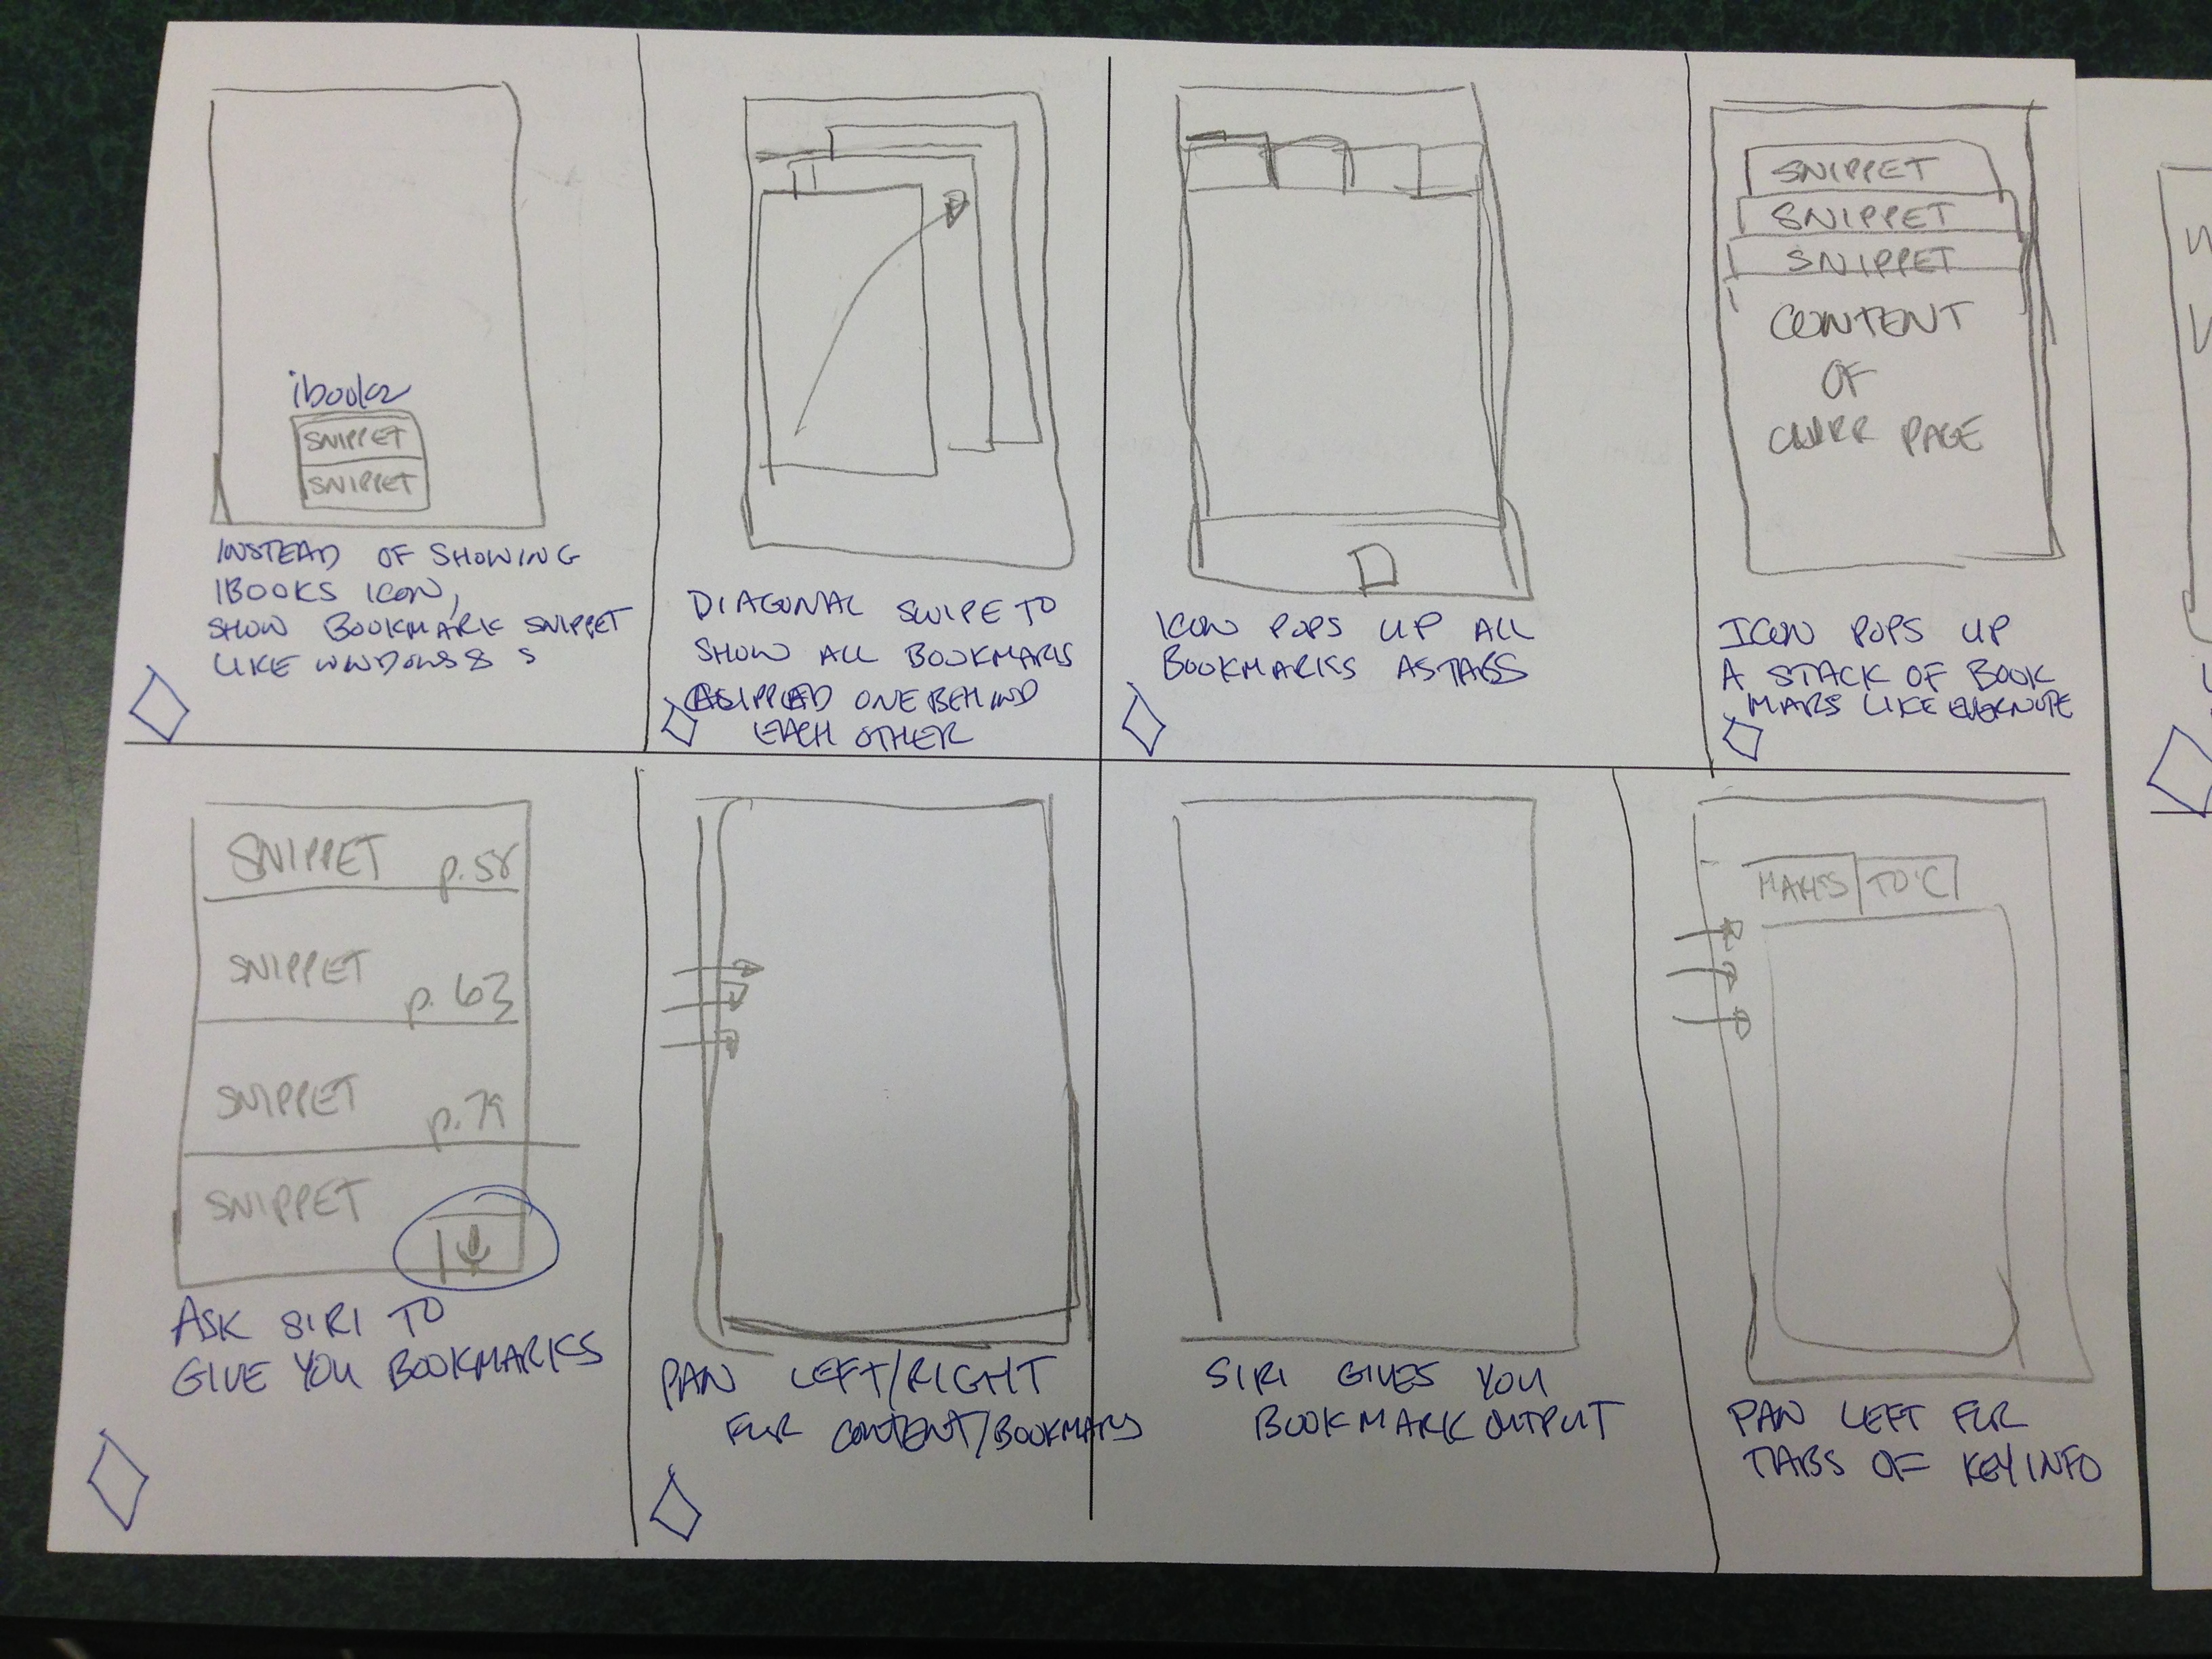 ibooks
SNIPPET
SNIPPET
INSTEAD OF SHOWING
IBOOKS ICON,
SHOW BOOKMARK SNIPPET
LIKE WINDOWS 8
S
DIAGONAL SWIPE TO
SHOW ALL BOOKMARKS
ONE BEHIND
EACH OTHER
ICON POPS UP ALL
BOOKMARKS AS TABS
SNIPPET
SNIPPET
SNIPPET
CONTENT
OF
CURR PAGE
ICON POPS UP
A STACK OF BOOK
MARKS LIKE EVERNOTE
SNIPPET p.58
SNIPPET p.63
SNIPPET p.79
SNIPPET
ASK SIRI TO
GIVE YOU BOOKMARKS
PAN LEFT/RIGHT
FOR CONTENT/BOOKMARKS
SIRI GIVES YOU
BOOKMARK OUTPUT
MARKS TOC
PAN LEFT FOR
TABS OF KEY INFO